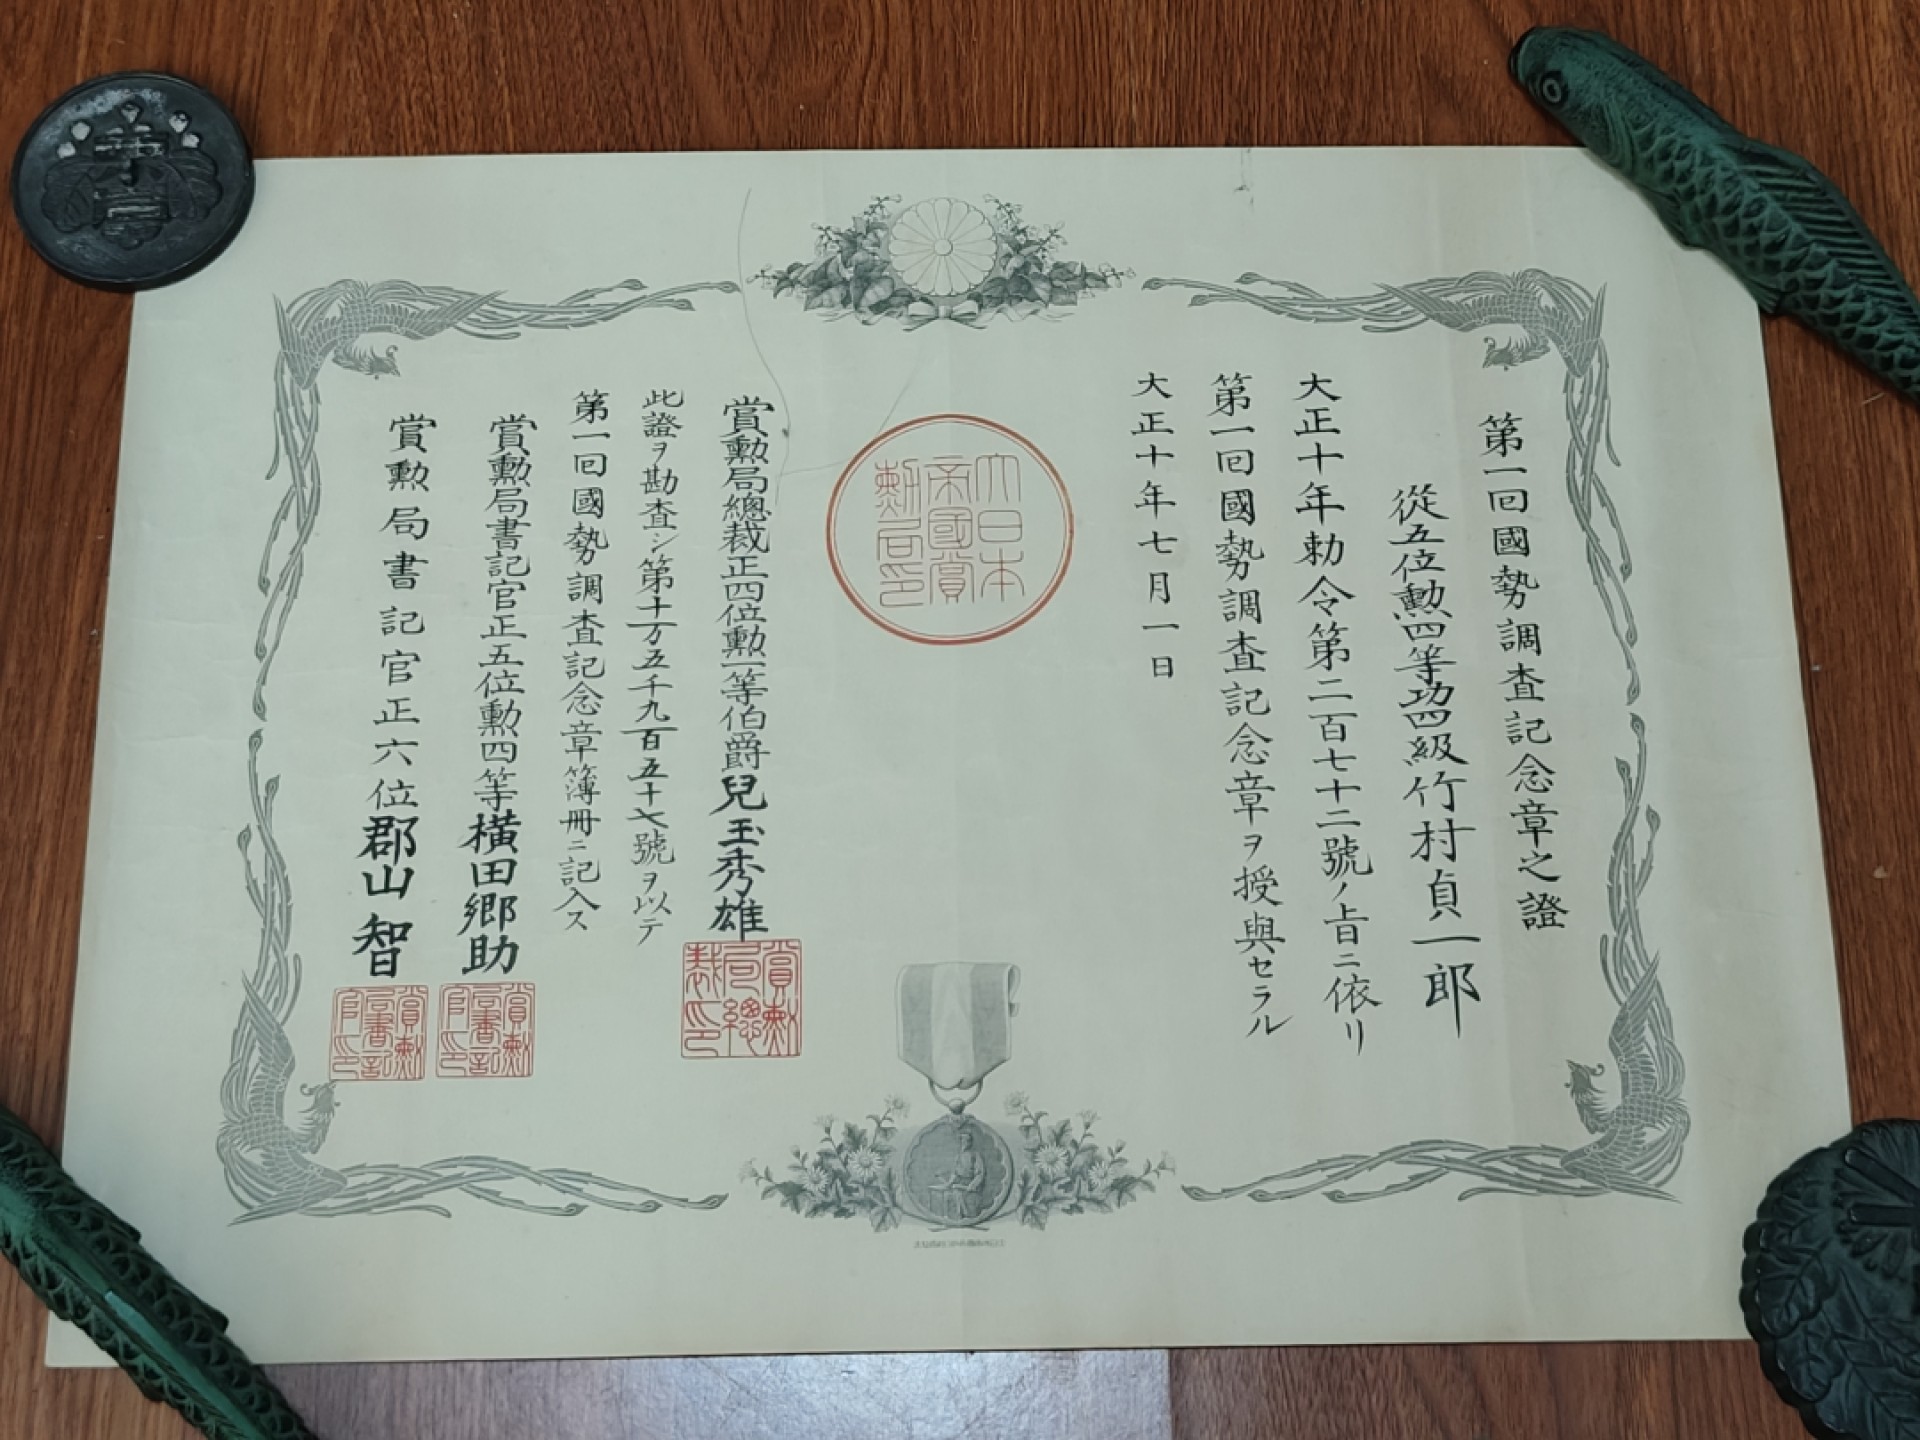 第一回國勢調査記念章之證
從五位勲四等功四級竹村貞一郎
大正十年勅令第二百七十二號ノ旨ニ依リ
第一回國勢調査記念章ヲ授與セラル
大正十年七月一日
大日本
帝國賞
勲局印
賞勲局總裁正四位勲一等伯爵兒玉秀雄
賞勲
局總
裁印
此證ヲ勘査シ第十万五千九百五十七號ヲ以テ
第一回國勢調査記念章簿冊ニ記入ス
賞勲局書記官正五位勲四等横田郷助
賞勲
局書記
官印
賞勲局書記官正六位郡山智
賞勲
局書記
官印